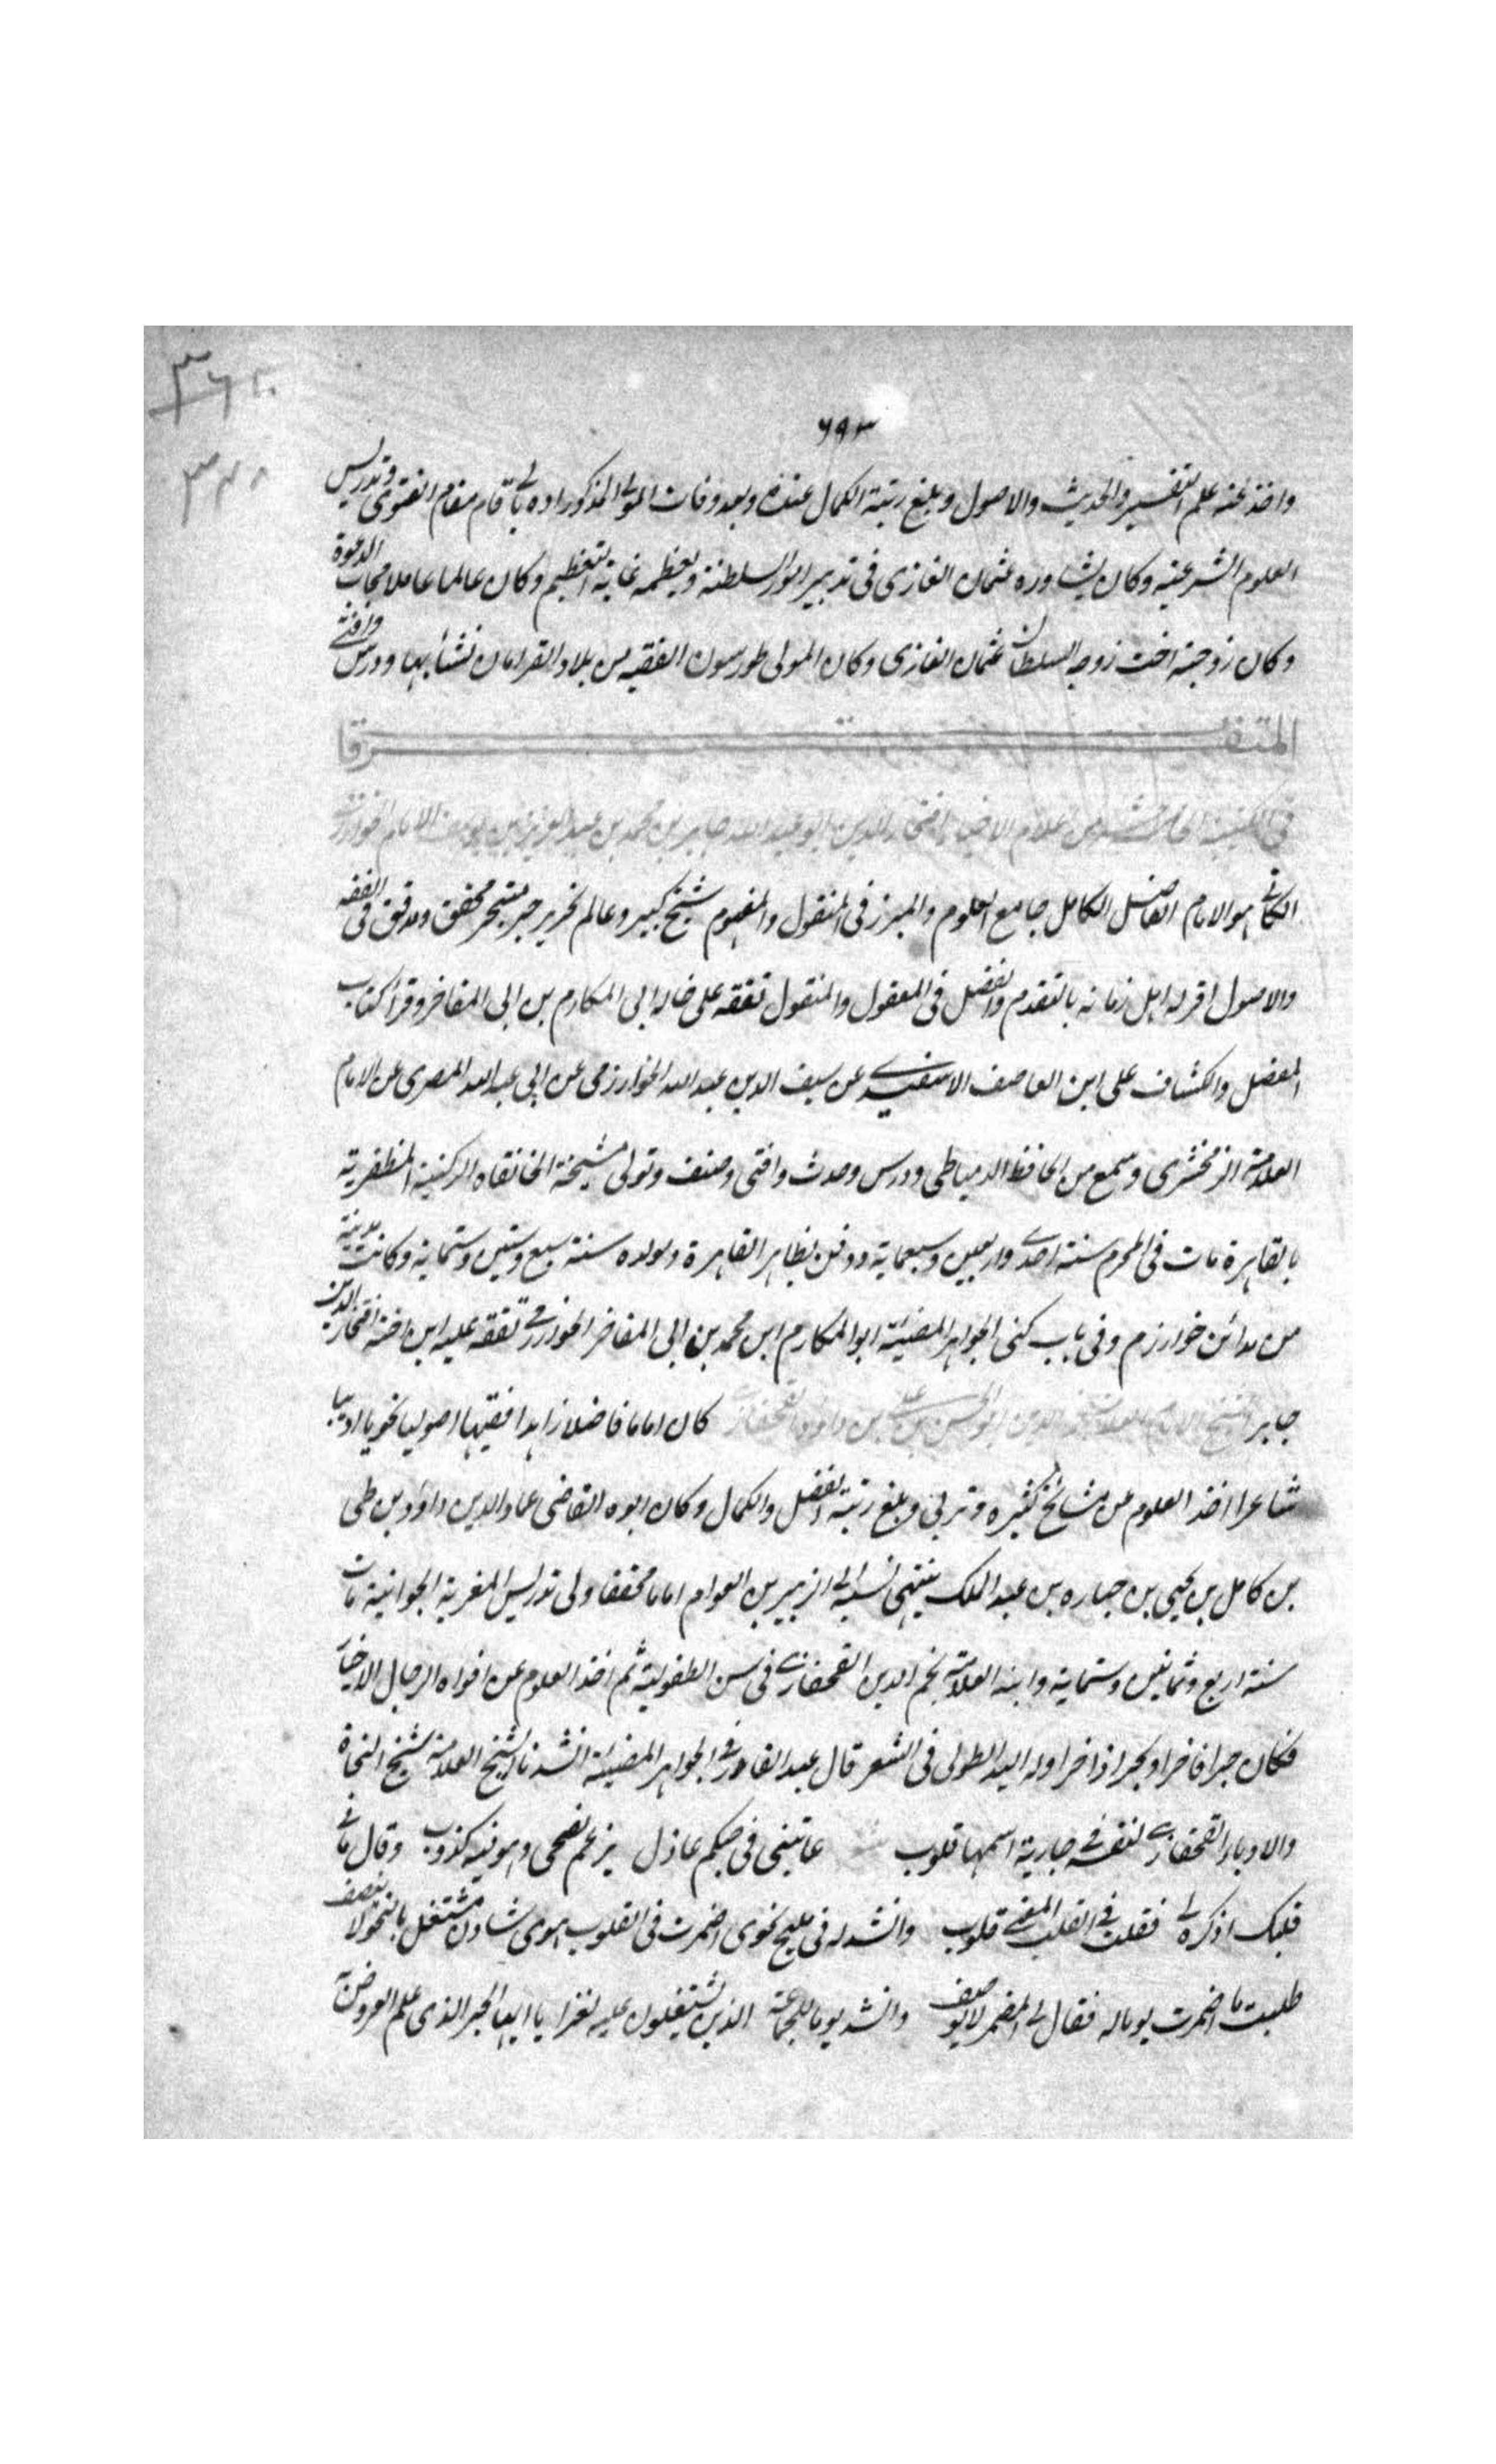 ٦٩٣
واخذ عنه علم التفسير والحديث والاصول وبلغ رتبة الكمال عنده وبعد وفات المولى المذكور اده بالى قام مقام الفتوى وتدريس
العلوم الشرعية وكان يشاوره عثمان الغازى فى تدبير امور السلطنة ويعظمه غاية التعظيم وكان عالما عاملا مجاب الدعوة
وكان زوجته اخت زوجه السلطان عثمان الغازى وكان المولى طورسون الفقيه من بلاد القرامان نشأ بها ودرس وافتى
المتفرقات
فى الكتيبة من اعلام الاخيار افتخار الدين ابو عبد الله جابر بن محمد بن عبد العزيز بن يوسف الامام الخوارزمى
الكاثى هو الامام الفاضل الكامل جامع العلوم والمبرز فى المنقول والمفهوم شيخ كبير وعالم نحرير حبر متبحر محقق ومدقق فى الفقه
والاصول اقر له اهل زمانه بالتقدم والفضل فى المعقول والمنقول تفقه على خاله ابى المكارم بن ابى المفاخر وقرأ كتاب
المفصل والكشاف على ابن العاصف الاسفندرى عن سيف الدين عبد الله الخوارزمى عن ابى عبد الله المصرى عن الامام
العلامة الزمخشرى وسمع من الحافظ الدمياطى ودرس وحدث وافتى وصنف وتولى مشيخة الخانقاه الركنية المظفرية
بالقاهرة مات فى المحرم سنة احدى واربعين وسبعماية ودفن بظاهر القاهرة ومولده سنة سبع وستين وستماية وكاث مدينة
من مدائن خوارزم وفى باب كنى الجواهر المضيئة ابو المكارم ابن محمد بن ابى المفاخر الخوارزمى تفقه عليه ابن اخته افتخار الدين
جابر الشيخ الامام العلامة نجم الدين ابو الحسن على بن داود القحفازى كان اماما فاضلا زاهدا فقيها اصوليا نحويا اديبا
شاعرا اخذ العلوم عن مشائخ كثيره وتربى وبلغ رتبة الفضل والكمال وكان ابوه القاضى عماد الدين داود بن يحيى
بن كامل بن يحيى بن جباره بن عبد الملك ينتهى نسبه الى الزبير بن العوام اماما محققا ولى تدريس المغربة الجوانية مات
سنة اربع وثمانين وستماية وابنه العلامة نجم الدين القحفازى فى سن الطفولية ثم اخذ العلوم عن افواه الرجال الاخيار
فكان حبرا فاخرا وبحرا ذاخرا وله اليد الطولى فى الشعر قال عبد القادر فى الجواهر المضيئة انشدنا الشيخ العلامة شيخ النحاة
والادباء القحفازى لنفسه فى جارية اسمها قلوب عاتبنى فى حبكم عاذل يزعم نصحى وهو فيه كذوب وقال ما فى
قلبك اذكره لى فقلت فى القلب المعنى قلوب وانشد له فى مليح نحوى اضمرت فى القلب هوى شادن مشتغل بالنحو لا ينصف
طلبت ما اضمرت يوما له فقال لى المضمر لا يوصف وانشد يوما للجماعة الذين يشتغلون عليه لغزا يا ايها الحبر الذى علم العروض به